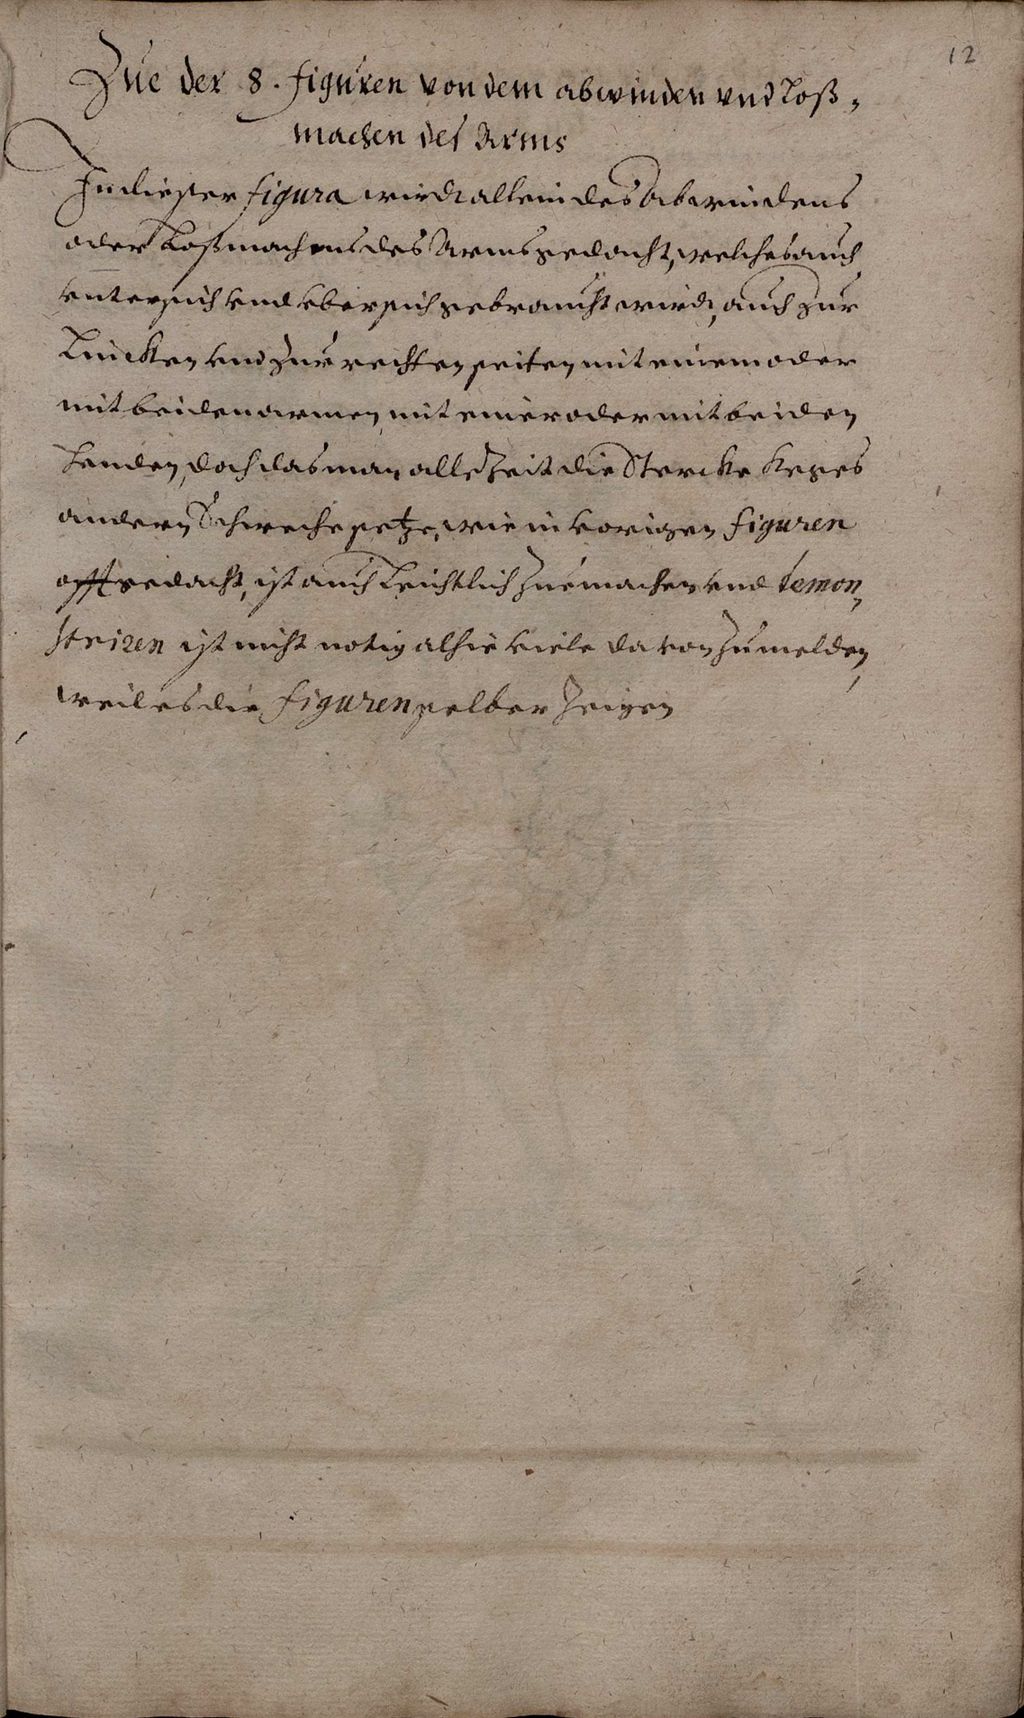 12
Zue der 8. figuren von dem abwinden vnd Loß„
machen des Arms
In dießer figura wirdt allein des Abwindens
oder Loßmachens des Arms gedacht, welches auch
vntersich vnd vbersich gebraucht wird, auch zur
Lincken vnd zur rechten seiten mit einem oder
mit beiden armen, mit einer oder mit beiden
henden, doch das man alle Zeit die Stercke keges
andern Schweche setze, wie in vorigen figuren
offt gedacht, ist auch Leichtlich zue machen vnd demon„
striren ist nicht notig alhie viele da von zu melden,
weil es die figuren selber zeigen